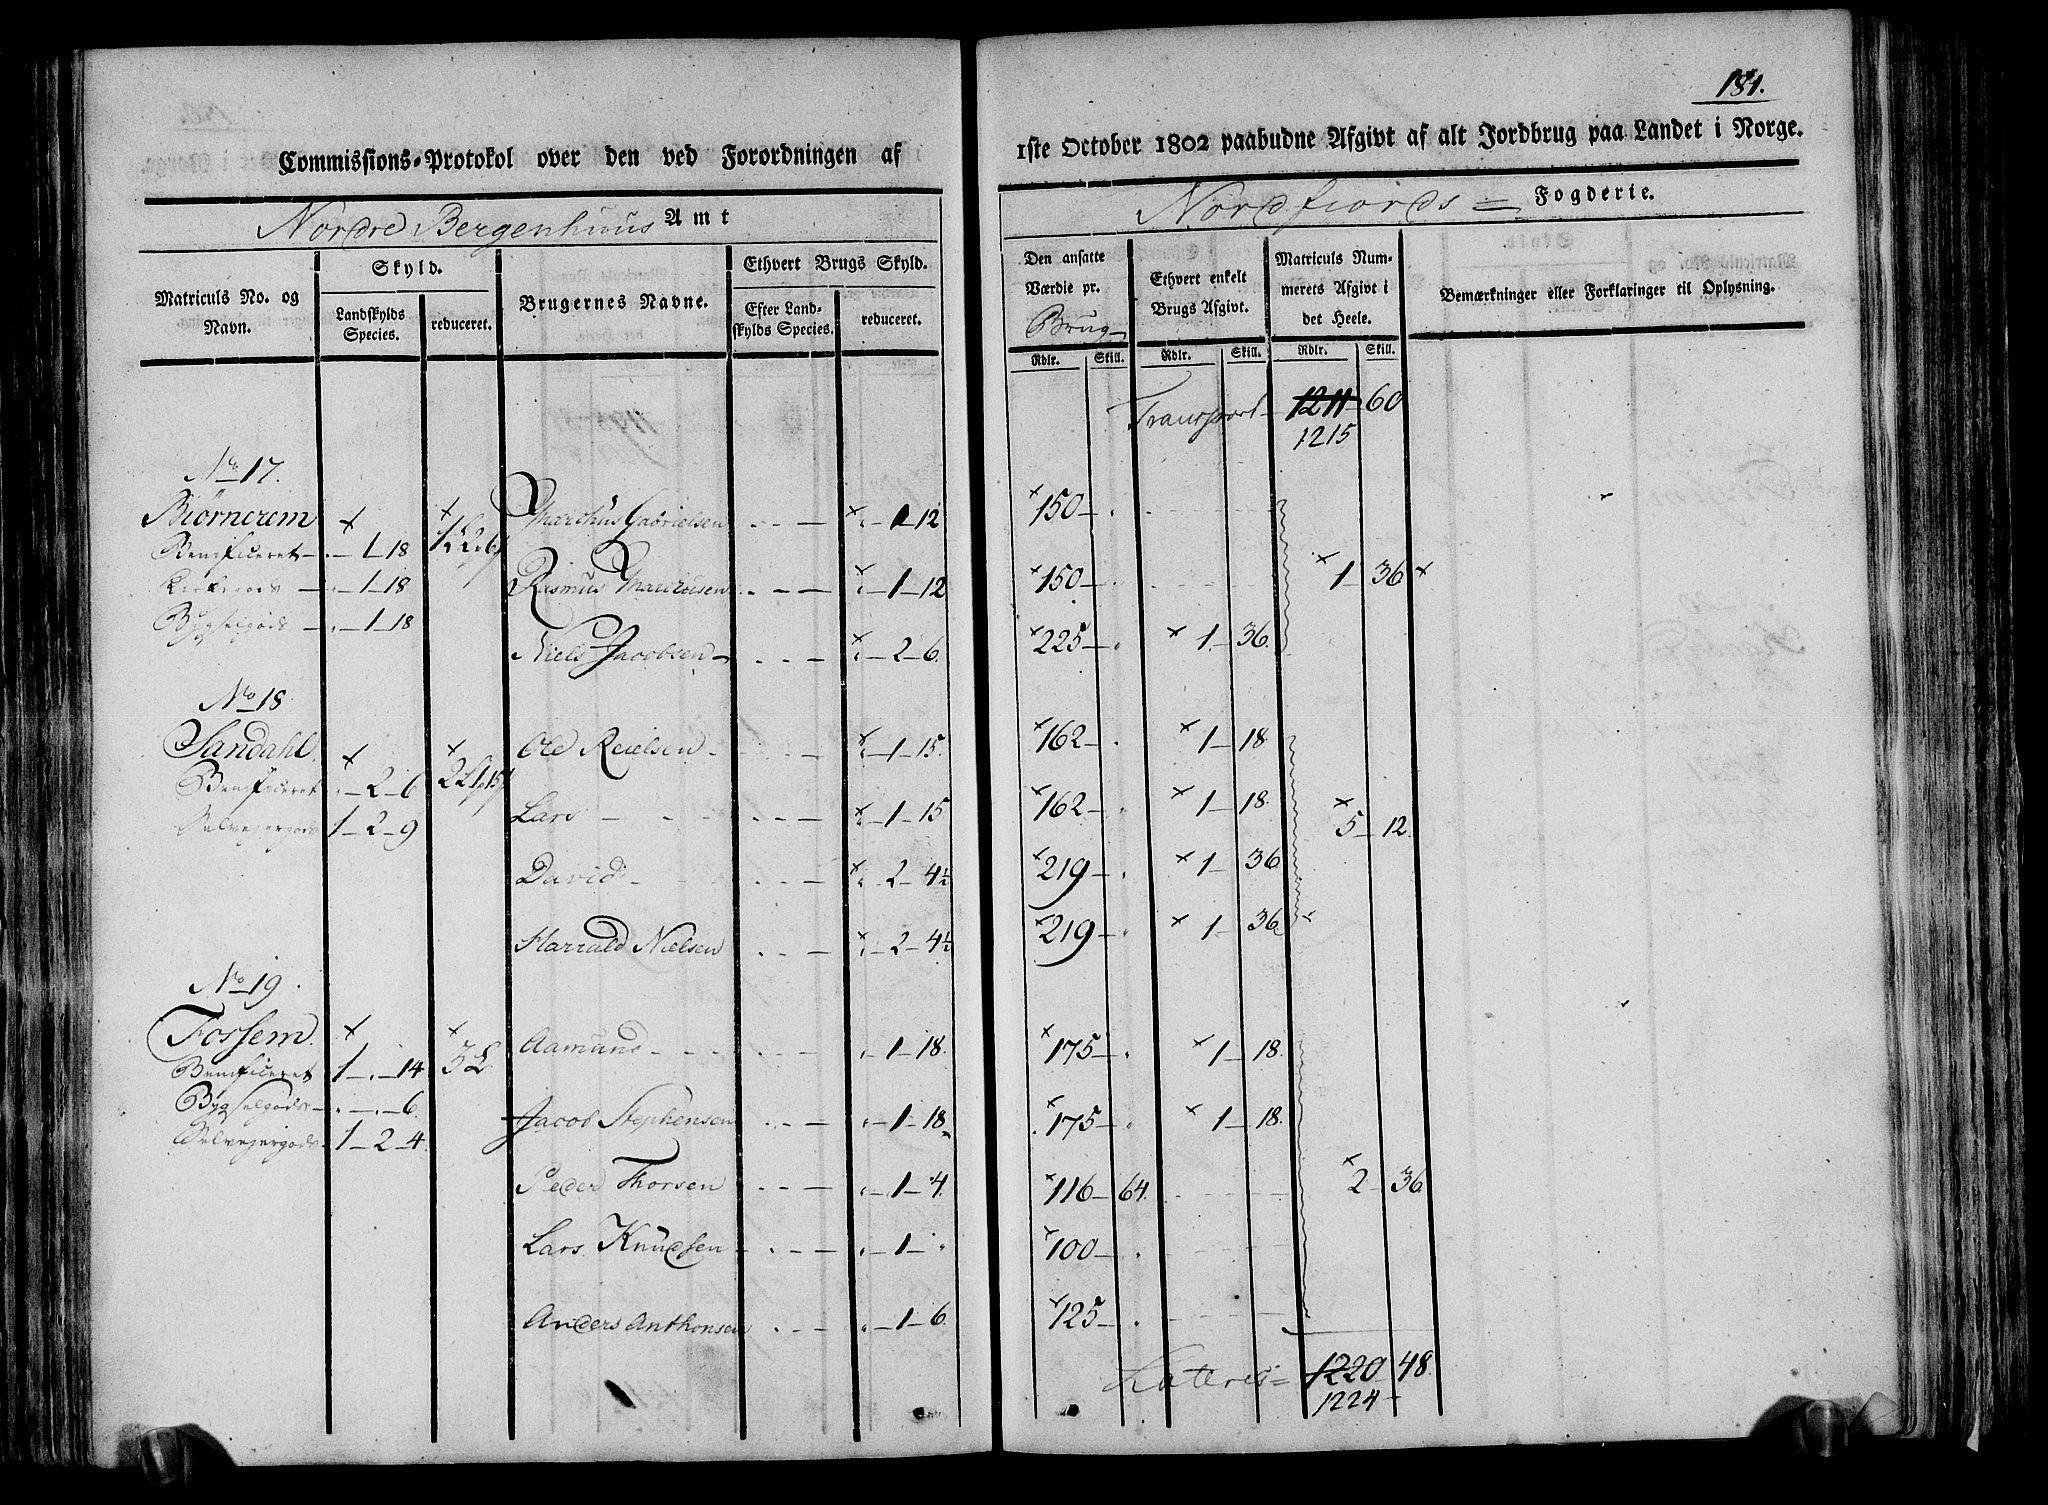 181.
Commissions-Protokol over den ved Forordningen af
1ste October 1802 paabudne Afgivt af alt Jordbrug paa Landet i Norge.
Nordre Bergenhuus Amt
Nordfiords = Fogderie.
Matriculs No. og Navn.
Skyld.
Landskylds Species.
reduceret.
Brugernes Navne.
Ethvert Brugs Skyld.
Efter Landskylds Species.
reduceret.
Den ansatte Værdie pr. Brug
Ethvert enkelt Brugs Afgivt.
Matriculs Nummerets Afgivt i det Heele.
Bemærkninger eller Forklaringer til Oplysning.
Rdlr. Skill. Rdlr. Skill. Rdlr. Skill.
Transport 1211 60
1215
No 17.
Biørnerem
Marchus Gabrielsen 1 12 150
Benificeret 1 18
Rasmus Marchusen 1 12 150 1 36
1 18
Bygselgods 1 18
Niels Jacobsen 2 6. 225 1 36.
No 18
Sandahl.
Ole Reielsen 1 15. 162 1 18
Benificeret 2 6
Lars 1 15 162 1 18. 5 12.
Selvejergods 1 2 9
David 2 4½ 219 1 36
Harrald Nielsen 2 4½ 219 1 36
No 19.
Fossem.
Aamund 1 18. 175 1 18.
Benificeret 1 14 3
Bygselgods 6.
Jacob Stephensen 1 18 175 1 18.
Selvejergods 1 2 4.
Peder Thorsen 1 4. 116 64. 2 36
Lars Knudsen 1 100
Anders Anthonsen 1 6 125
Lateris = 1220 48.
1224